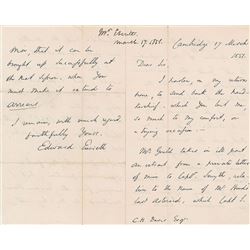 Mr. Everett.
March 17. 1851.
Cambridge 17 March
1851.
Dear Sir,
I hasten, on my return
home, to send back the
which you lent me,
so much to my comfort, on
a trying occasion.
Mr Gould takes in ill part
an extract from a private letter
of mine to Capt. Smyth, rela-
tive to the name of Mr Hind's
last asteroid, which Capt S.
C. H. Davis Esqr.
Now that it can be
brought up successfully at
the next session. when you
must make it extend to
arrears.
I remain, with much regard,
faithfully Yours,
Edward Everett